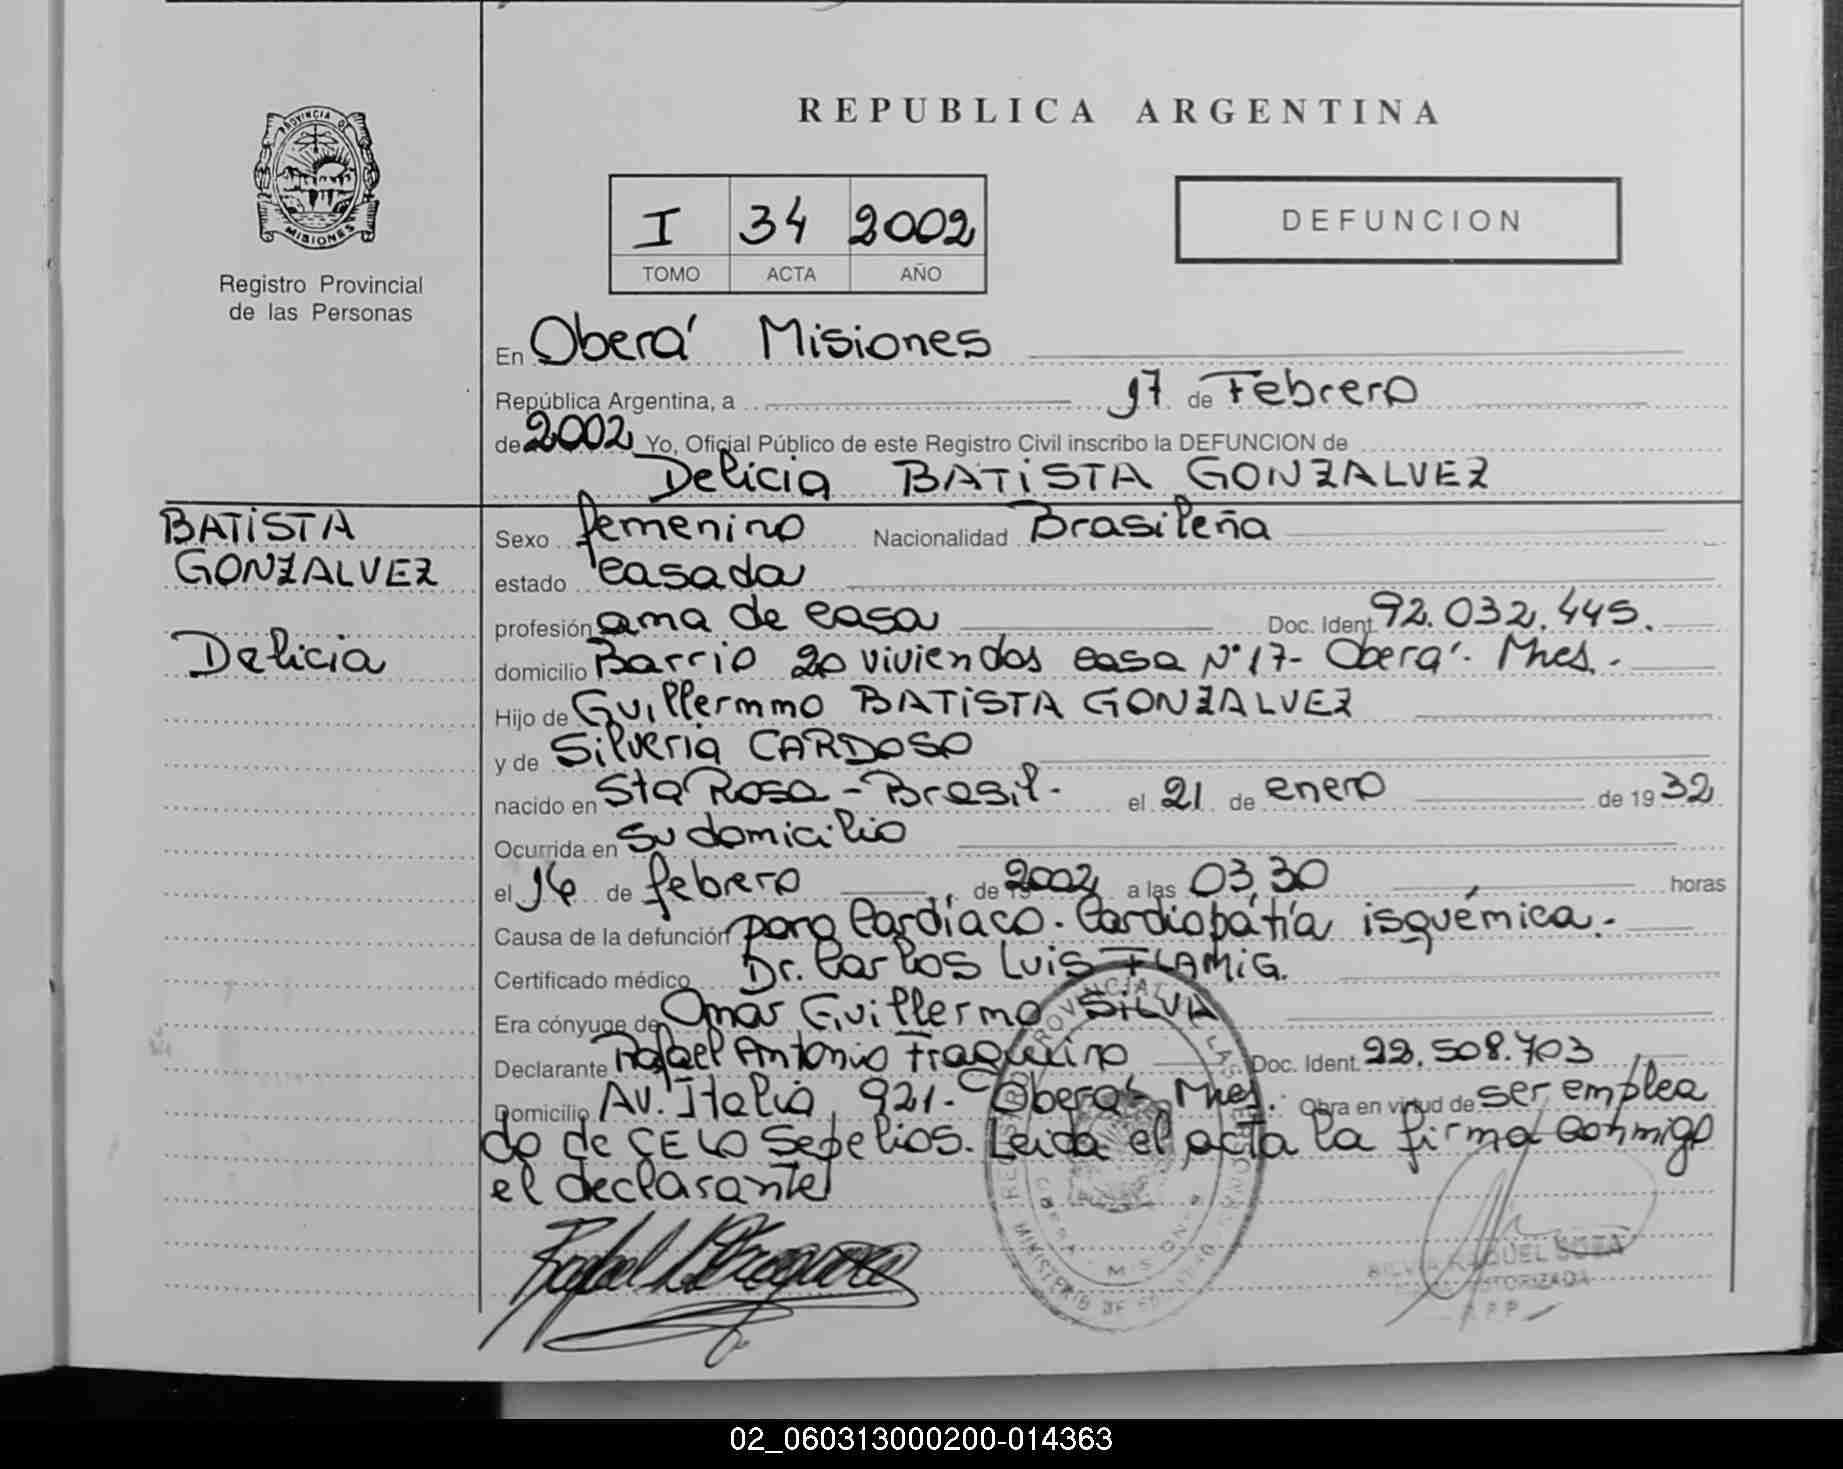 REPUBLICA ARGENTINA
PROVINCIA DE
MISIONES
Registro Provincial
de las Personas
I 34 2002
TOMO ACTA AÑO
DEFUNCION
En Oberá Misiones
República Argentina, a 17 de Febrero
de 2002 Yo, Oficial Público de este Registro Civil inscribo la DEFUNCION de
Delicia BATISTA GONZALVEZ
BATISTA
GONZALVEZ
Delicia
Sexo femenino Nacionalidad Brasileña
estado casada
profesión ama de casa Doc. Ident. 92.032.445.
domicilio Barrio 20 viviendas casa N° 17- Oberá- Mnes.-
Hijo de Guillermmo BATISTA GONZALVEZ
y de Silveria CARDOSO
nacido en Sta Rosa - Brasil- el 21 de enero de 19 32
Ocurrida en Su domicilio
el 16 de febrero de 2002 a las 03,30 horas
Causa de la defunción paro Cardíaco. Cardiopátía isquémica.-
Certificado médico Dr. Carlos Luis FLAMIG.
Era cónyuge de Omar Guillermo SILVA
Declarante Rafael Antonio Fraqueiro Doc. Ident. 22.508.703
Domicilio Av. Italia 921- Oberá- Mnes. Obra en virtud de ser emplea
do de CELO Sepelios. Leida el acta la firma conmigo
el declarante
MINISTERIO DE
RAQUEL SOTA
AUTORIZADA
02_060313000200-014363